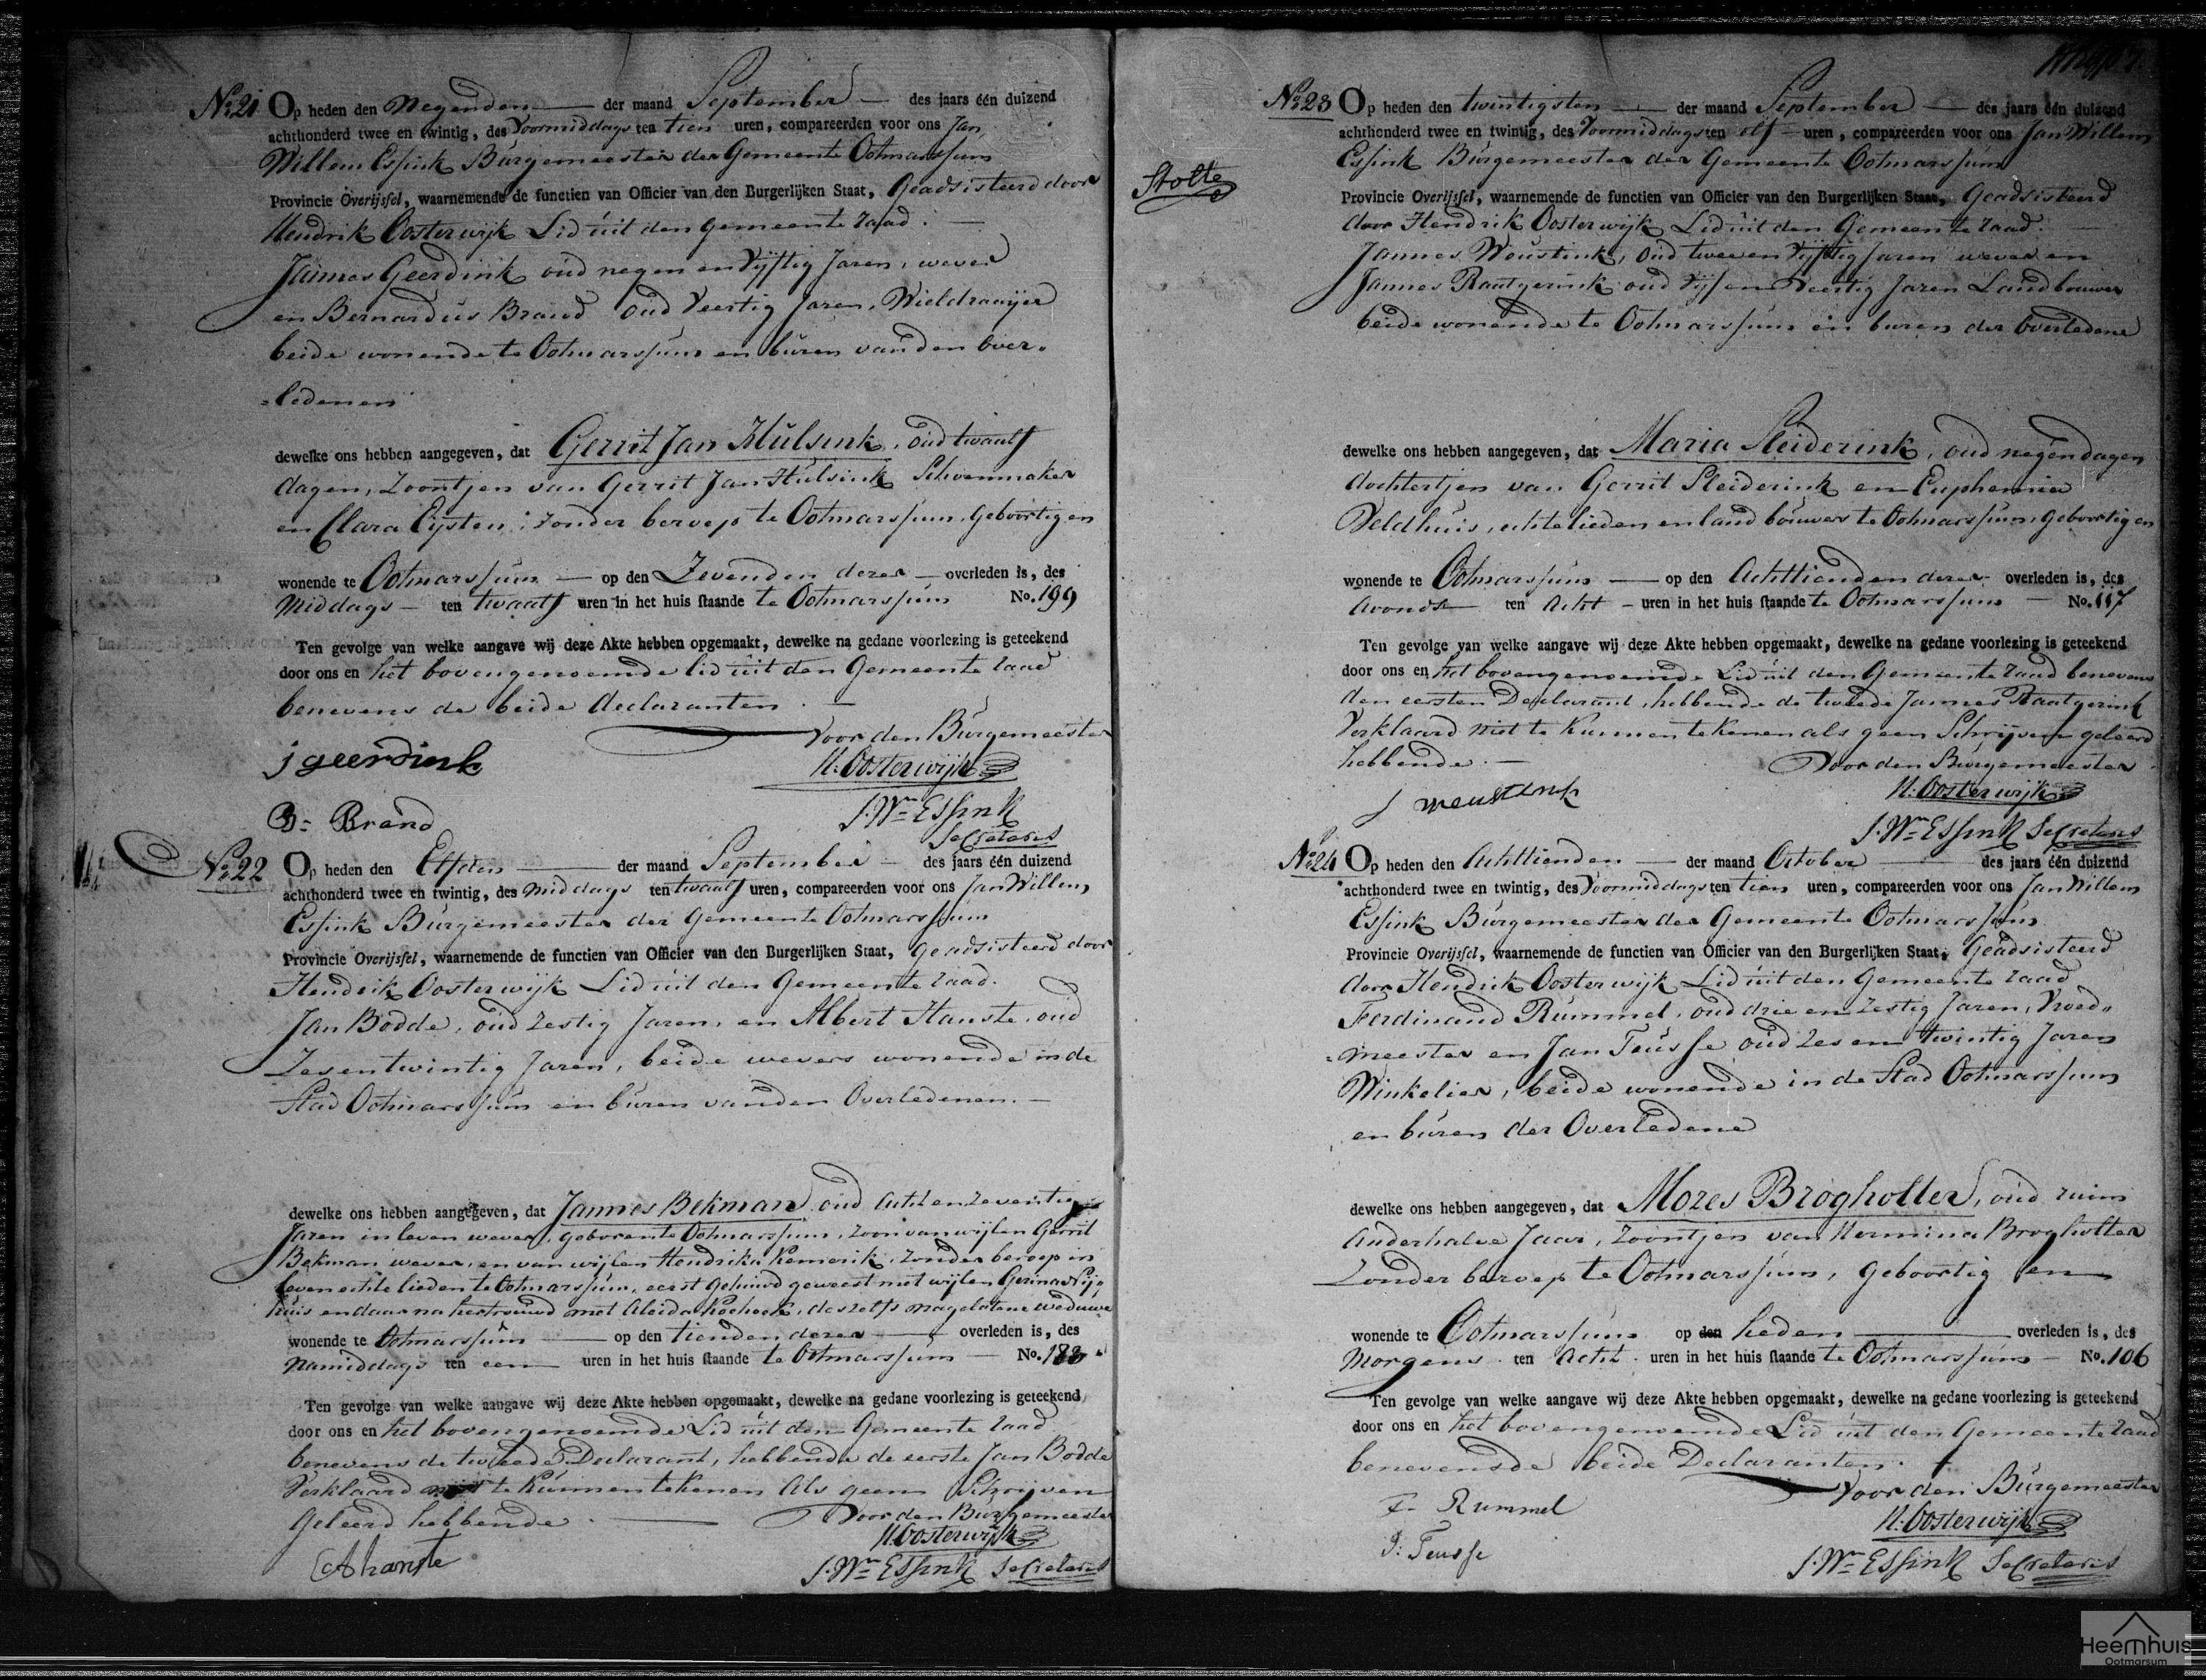 No 21 Op heden den Negenden der maand September des jaars één duizend
achthonderd twee en twintig, des Voormiddags ten tien uren, compareerden voor ons Jan
Willem Essink Burgemeester der Gemeente Ootmarssum
Provincie Overijssel, waarnemende de functien van Officier van den Burgerlijken Staat, Geadsisteerd door
Hendrik Oosterwijk Lid uit den gemeente raad.
Jannes Geerdink oud negen en Vijftig Jaren, wever
en Bernardus Brand oud Veertig Jaren, Wieldraaijer
beide wonende te Ootmarssum en buren van den over-
=ledenen
dewelke ons hebben aangegeven, dat Gerrit Jan Hulsink, oud twaalf
dagen, Zoontjen van Gerrit Jan Hulsink Schoenmaker
en Clara Eijsten, zonder beroep te Ootmarssum, Geboortig en
wonende te Ootmarssum op den Zevenden dezer overleden is, des
Middags ten twaalf uren in het huis staande te Ootmarssum No. 199
Ten gevolge van welke aangave wij deze Akte hebben opgemaakt, dewelke na gedane voorlezing is geteekend
door ons en het bovengenoemde lid uit den Gemeente raad
benevens de beide declaranten.
Voor den Burgemeester
j geerdink
H: Oosterwijk
J. Wm Essink
B: Brand
Secretaris
No 22 Op heden den Elfden der maand September des jaars één duizend
achthonderd twee en twintig, des middags ten twaalf uren, compareerden voor ons Jan Willem
Essink Burgemeester der Gemeente Ootmarssum
Provincie Overijssel, waarnemende de functien van Officier van den Burgerlijken Staat, Geadsisteerd door
Hendrik Oosterwijk Lid uit den Gemeente raad.
Jan Bodde, oud zestig Jaren, en Albert Hanste, oud
Zesentwintig Jaren, beide wevers wonende in de
Stad Ootmarssum en buren van den Overledenen.
dewelke ons hebben aangegeven, dat Jannes Bekman oud Acht en zeventig
Jaren in leven wever, geboren te Ootmarssum, Zoon van wijlen Gerrit
Bekman wever, en van wijlen Hendrika Kemerik, zonder beroep in
leven echte lieden te Ootmarssum, eerst gehuwd geweest met wijlen Gerina
huis en daarna hertrouwd met Aleida deszelfs nagelatene weduwe
wonende te Ootmarssum op den tienden dezer overleden is, des
Namiddags ten een uren in het huis staande te Ootmarssum No. 188
Ten gevolge van welke aangave wij deze Akte hebben opgemaakt, dewelke na gedane voorlezing is geteekend
door ons en het bovengenoemde Lid uit den Gemeente raad
benevens de tweede Declarant, hebbende de eerste Jan Bodde
Verklaard niet te kunnen tekenen als geen Schrijven
Geleerd hebbende.
Voor den Burgemeester
H: Oosterwijk
A hanste
J. Wm Essink Secretaris
Stolte
No 23 Op heden den twintigsten der maand September des jaars één duizend
achthonderd twee en twintig, des Voormiddags ten elf uren, compareerden voor ons Jan Willem
Essink Burgemeester der Gemeente Ootmarssum
Provincie Overijssel, waarnemende de functien van Officier van den Burgerlijken Staat, Geadsisteerd
door Hendrik Oosterwijk Lid uit den Gemeente raad.
Jannes Weustink, oud twee en Vijftig Jaren wever en
Jannes Raatgerink oud Vijf en Veertig Jaren Landbouwer
beide wonende te Ootmarssum en buren der Overledene
dewelke ons hebben aangegeven, dat Maria Sleiderink, oud negen dagen
dochtertjen van Gerrit Sleiderink en Euphemia
Veldhuis, echtelieden en landbouwers te Ootmarssum, geboortig en
wonende te Ootmarssum op den Achttienden dezer overleden is, des
Avonds ten Acht uren in het huis staande te Ootmarssum No. 117
Ten gevolge van welke aangave wij deze Akte hebben opgemaakt, dewelke na gedane voorlezing is geteekend
door ons en het bovengenoemde Lid uit den Gemeente raad benevens
den eersten Declarant, hebbende de tweede Jannes Raatgerink
Verklaard niet te Kunnen tekenen als geen Schrijven geleerd
hebbende.
Voor den Burgemeester
J weustink
H: Oosterwijk
J. Wm Essink Secretaris
No 24 Op heden den Achttienden der maand October des jaars één duizend
achthonderd twee en twintig, des Voormiddags ten tien uren, compareerden voor ons Jan Willem
Essink Burgemeester der Gemeente Ootmarssum
Provincie Overijssel, waarnemende de functien van Officier van den Burgerlijken Staat, Geadsisteerd
door Hendrik Oosterwijk Lid uit den Gemeente raad
Ferdinand Rummel, oud drie en zestig Jaren, Vroed-
=meester en Jan Teusse oud zes en twintig Jaren
Winkelier, beide wonende in de Stad Ootmarssum
en buren der Overledene
dewelke ons hebben aangegeven, dat Mozes Brogholter, oud ruim
Anderhalve Jaar, Zoontjen van Hermina Brogholter
Zonder beroep te Ootmarssum, Geboortig en
wonende te Ootmarssum op den heden overleden is, des
Morgens ten Acht uren in het huis staande te Ootmarssum No. 106
Ten gevolge van welke aangave wij deze Akte hebben opgemaakt, dewelke na gedane voorlezing is geteekend
door ons en het bovengenoemde Lid uit den Gemeente raad
benevens de beide Declaranten.
Voor den Burgemeester
F. Rummel
H: Oosterwijk
J: Teusse
J. Wm Essink Secretaris
Heemhuis
Ootmarsum